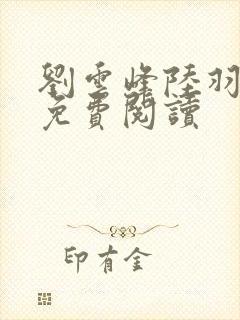 劉雲峰陸羽
免費閱讀
印有金